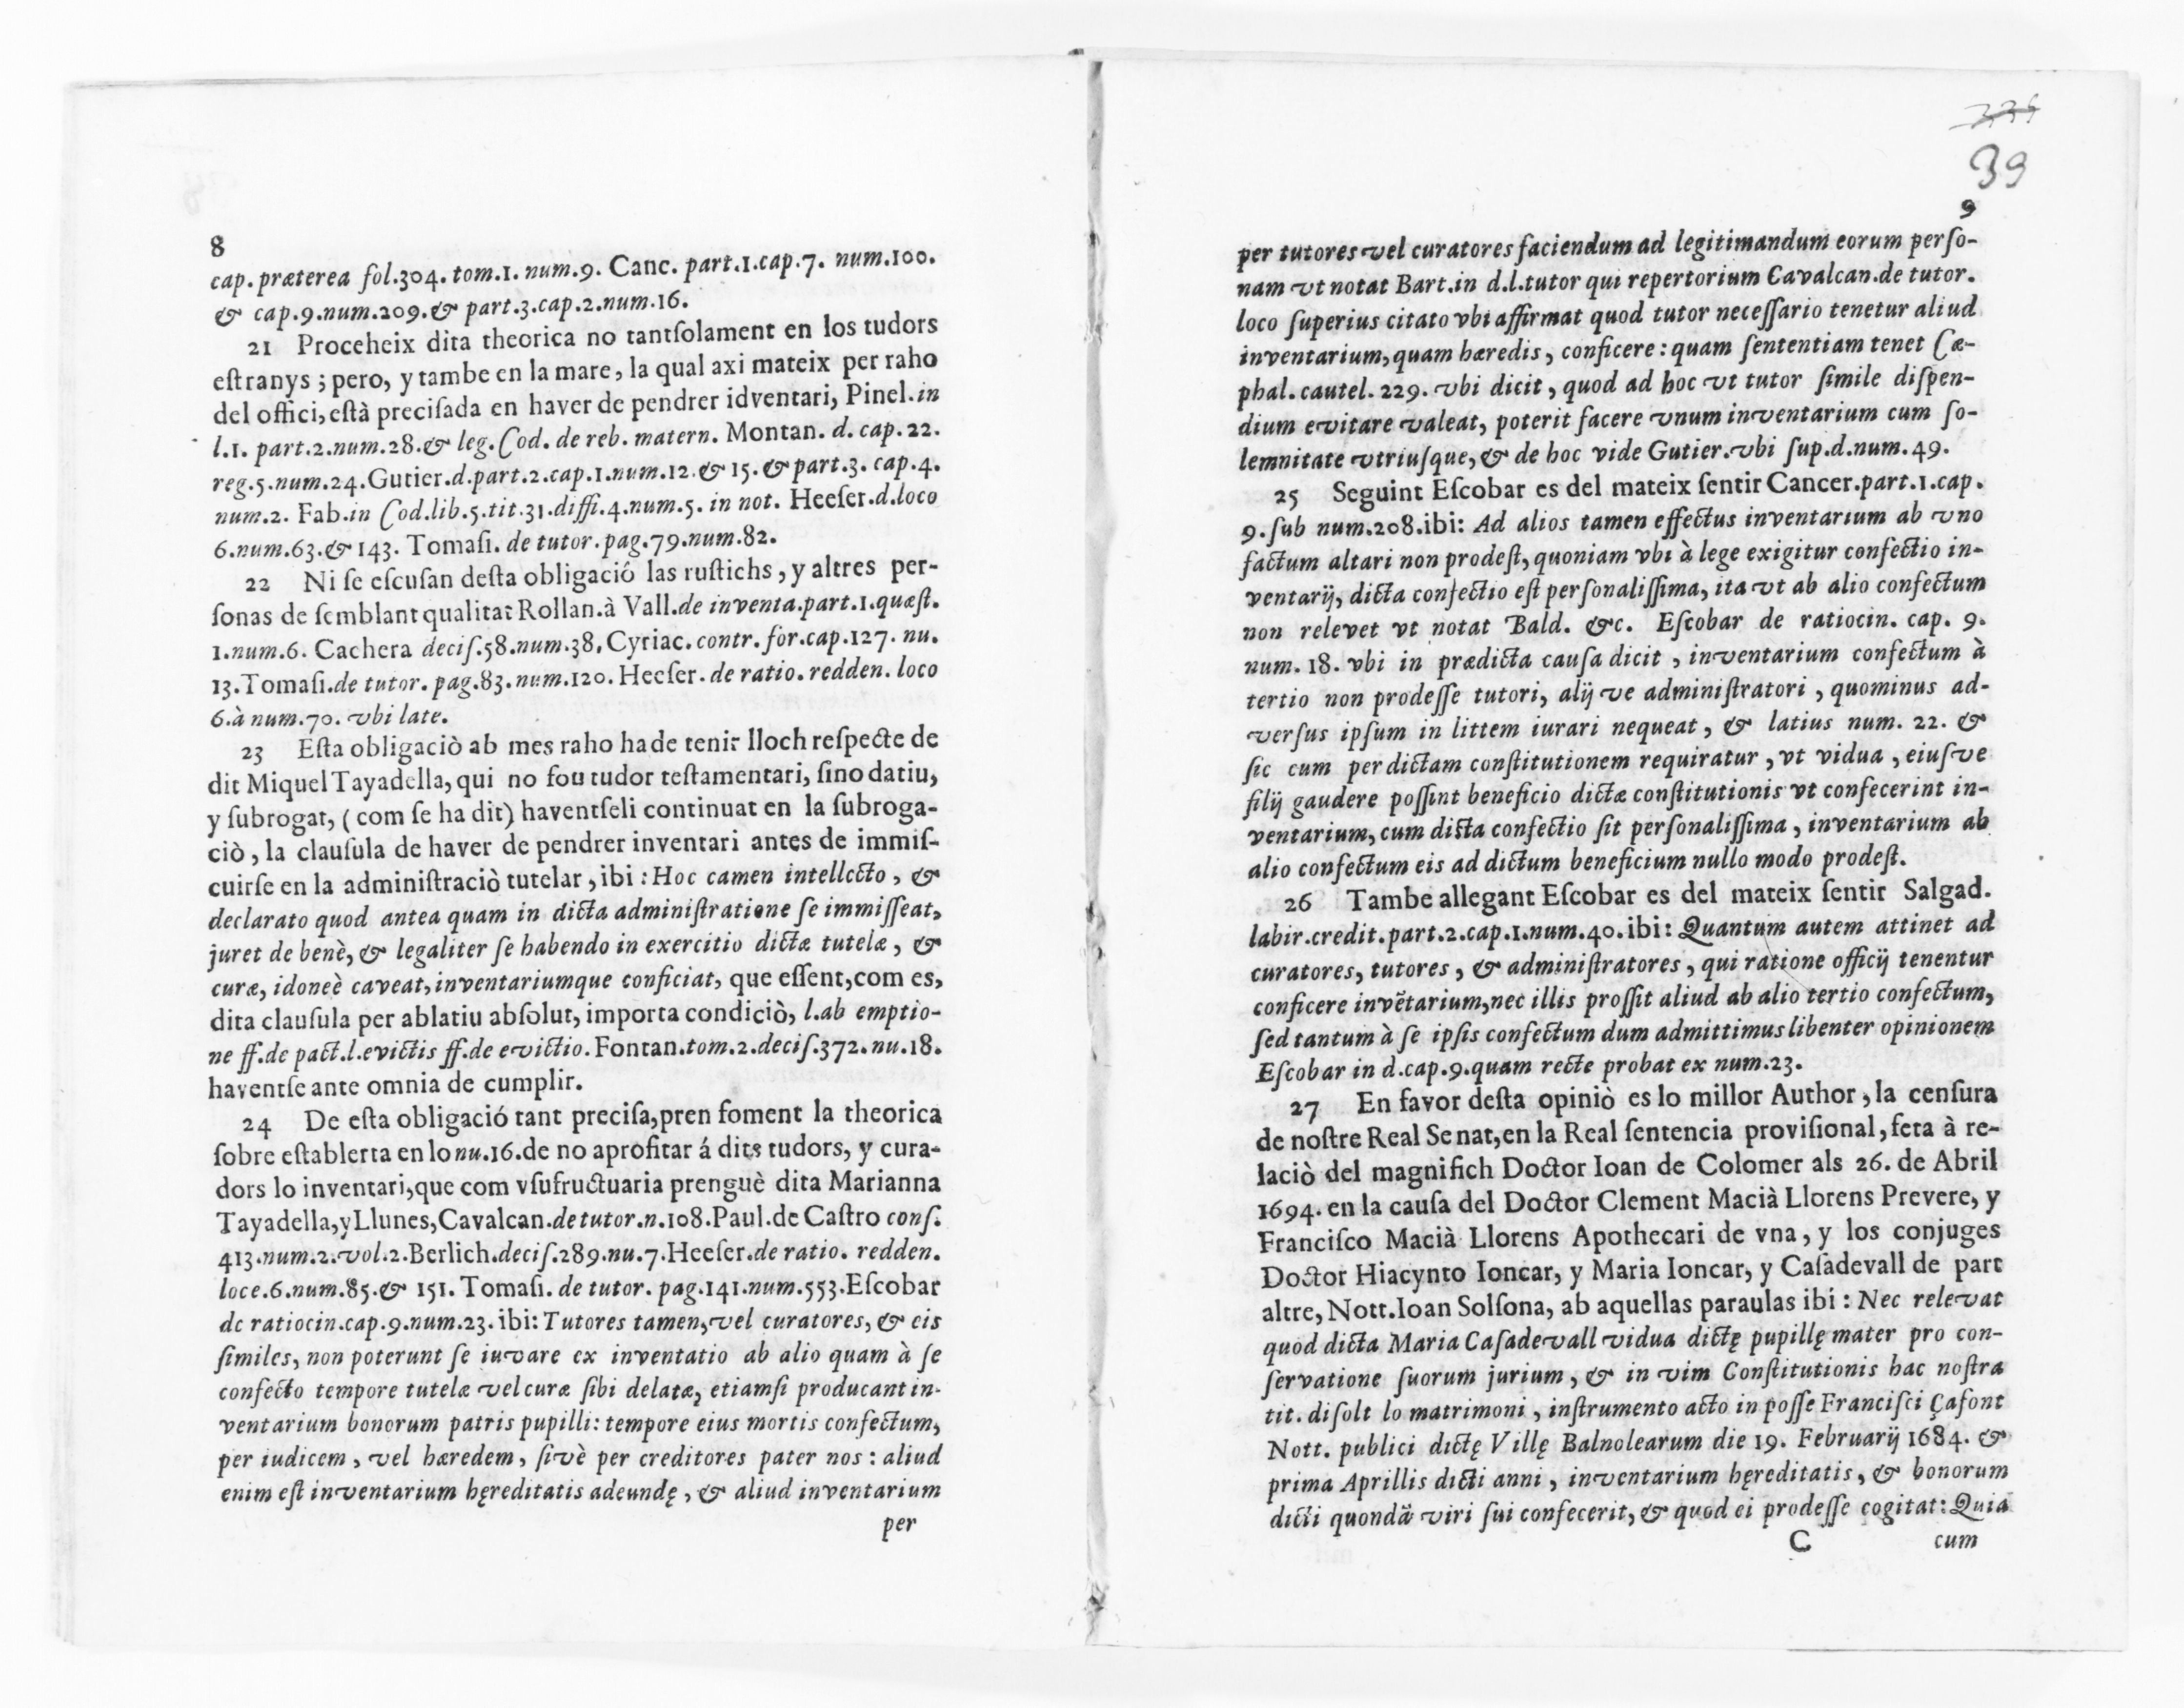 8
cap. præterea fol.304. tom.1. num.9. Canc. part.1.cap.7. num.100.
& cap.9.num.209.& part.3.cap.2.num.16.
21 Proceheix dita theorica no tantſolament en los tudors
eſtranys ; pero, y tambe en la mare, la qual axi mateix per raho
del offici,eſtà preciſada en haver de pendrer idventari, Pinel.in
l.1. part.2.num.28.& leg. Cod. de reb. matern. Montan. d. cap. 22.
reg.5.num.24.Gutier.d.part.2.cap.1.num.12.& 15.& part.3. cap.4.
num.2. Fab.in Cod.lib.5.tit.31.diffi.4.num.5. in not. Heeſer.d.loco
6.num.63.& 143. Tomaſi. de tutor.pag.79.num.82.
22 Ni ſe eſcuſan deſta obligació las ruſtichs, y altres per-
ſonas de ſemblant qualitat Rollan.à Vall.de inventa.part.1.quæſt.
1.num.6. Cachera deciſ.58.num.38, Cyriac. contr. for.cap.127. nu.
13.Tomaſi.de tutor. pag.83.num.120. Heeſer. de ratio. redden. loco
6.à num.70. vbi late.
23 Eſta obligaciò ab mes raho ha de tenir lloch reſpecte de
dit Miquel Tayadella, qui no fou tudor teſtamentari, ſino datiu,
y ſubrogat, ( com ſe ha dit) haventſeli continuat en la ſubroga-
ciò , la clauſula de haver de pendrer inventari antes de immiſ-
cuirſe en la adminiſtraciò tutelar , ibi : Hoc camen intellecto , &
declarato quod antea quam in dicta adminiſtratione ſe immiſſeat,
juret de benè, & legaliter ſe habendo in exercitio dictæ tutelæ , &
curæ, idoneè caveat, inventariumque conficiat, que eſſent,com es,
dita clauſula per ablatiu abſolut, importa condiciò, l.ab emptio-
ne ff.de pact.l.evictis ff.de evictio. Fontan.tom.2.deciſ.372.nu.18.
haventſe ante omnia de cumplir.
24 De eſta obligació tant preciſa,pren foment la theorica
ſobre eſtablerta en lo nu.16.de no aprofitar á dits tudors, y cura-
dors lo inventari,que com vſufructuaria prenguè dita Marianna
Tayadella,y Llunes,Cavalcan.de tutor.n.108.Paul.de Caſtro conſ.
413.num.2.vol.2.Berlich.deciſ.289.nu.7.Heeſer.de ratio. redden.
loce.6.num.85.& 151. Tomaſi. de tutor. pag.141.num.553.Eſcobar
de ratiocin.cap.9.num.23. ibi: Tutores tamen,vel curatores, & eis
ſimiles, non poterunt ſe iuvare ex inventatio ab alio quam à ſe
confecto tempore tutelæ vel curæ ſibi delatæ, etiamſi producant in-
ventarium bonorum patris pupilli: tempore eius mortis confectum,
per iudicem , vel hæredem , ſivè per creditores pater nos : aliud
enim eſt inventarium hęreditatis adeundę , & aliud inventarium
per
39
9
per tutores vel curatores faciendum ad legitimandum eorum perſo-
nam vt notat Bart.in d.l.tutor qui repertorium Cavalcan.de tutor.
loco ſuperius citato vbi affirmat quod tutor neceſſario tenetur aliud
inventarium, quam hæredis , conficere : quam ſententiam tenet Cæ-
phal. cautel. 229. vbi dicit , quod ad hoc vt tutor ſimile diſpen-
dium evitare valeat, poterit facere vnum inventarium cum ſo-
lemnitate vtriuſque, & de hoc vide Gutier.vbi ſup.d.num.49.
25 Seguint Eſcobar es del mateix ſentir Cancer.part.1.cap.
9.ſub num.208.ibi: Ad alios tamen effectus inventarium ab vno
factum altari non prodeſt, quoniam vbi à lege exigitur confectio in-
ventarij, dicta confectio eſt perſonaliſſima, ita vt ab alio confectum
non relevet vt notat Bald. &c. Eſcobar de ratiocin. cap. 9.
num. 18. vbi in prædicta cauſa dicit , inventarium confectum à
tertio non prodeſſe tutori, alij ve adminiſtratori , quominus ad-
verſus ipſum in littem iurari nequeat , & latius num. 22. &
ſic cum per dictam conſtitutionem requiratur , vt vidua , eiuſve
filij gaudere poſſint beneficio dictæ conſtitutionis vt confecerint in-
ventarium, cum dicta confectio ſit perſonaliſſima , inventarium ab
alio confectum eis ad dictum beneficium nullo modo prodeſt.
26 Tambe allegant Eſcobar es del mateix ſentir Salgad.
labir.credit.part.2.cap.1.num.40.ibi: Quantum autem attinet ad
curatores, tutores , & adminiſtratores , qui ratione officij tenentur
conficere invẽtarium,nec illis proſſit aliud ab alio tertio confectum,
ſed tantum à ſe ipſis confectum dum admittimus libenter opinionem
Eſcobar in d.cap.9.quam recte probat ex num.23.
27 En favor deſta opiniò es lo millor Author , la cenſura
de noſtre Real Senat,en la Real ſentencia proviſional, feta à re-
laciò del magnifich Doctor Ioan de Colomer als 26. de Abril
1694. en la cauſa del Doctor Clement Macià Llorens Prevere, y
Franciſco Macià Llorens Apothecari de vna , y los conjuges
Doctor Hiacynto Ioncar, y Maria Ioncar, y Caſadevall de part
altre, Nott.Ioan Solſona, ab aquellas paraulas ibi : Nec relevat
quod dicta Maria Caſadevall vidua dictę pupillę mater pro con-
ſervatione ſuorum jurium , & in vim Conſtitutionis hac noſtra
tit. diſolt lo matrimoni , inſtrumento acto in poſſe Franciſci Çafont
Nott. publici dictę Villę Balnolearum die 19. Februarij 1684. &
prima Aprillis dicti anni , inventarium hęreditatis , & bonorum
dicti quondã viri ſui confecerit, & quod ei prodeſſe cogitat: Quia
C cum